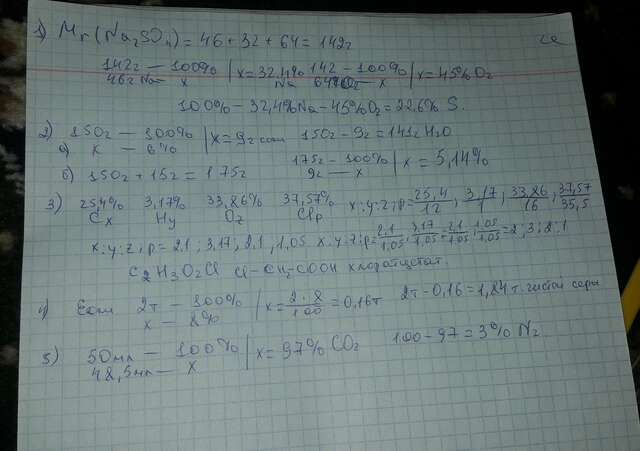 1) Mr(Na2SO4) = 46 + 32 + 64 = 142г
142г — 100% | x = 32,4% 142 — 100% | x = 45% O2
46г Na — x | Na 64 O2 — x
100% - 32,4% Na - 45% O2 = 22,6% S.
2) 150г — 100% | x = 9г соли 150г - 9г = 141г H2O
а) x — 6%
б) 150г + 15г = 175г 175г — 100% | x = 5,14%
9г — x
3) 25,4% 3,17% 33,86% 37,57% x:y:z:p = 25,4/12 : 3,17/1 : 33,86/16 : 37,57/35,5
Cx Hy Oz Clp
x:y:z:p = 2,1 : 3,17 : 2,1 : 1,05 x:y:z:p = 2,1/1,05 : 3,17/1,05 : 2,1/1,05 : 1,05/1,05 = 2:3:2:1
C2H3O2Cl Cl-CH2-COOH хлорацетат.
4) Если 2т — 100% | x = 2·8/100 = 0,16т 2т - 0,16 = 1,84т. чистой серы
x — 8%
5) 50мл — 100% | x = 97% CO2 100 - 97 = 3% N2
48,5мл — x